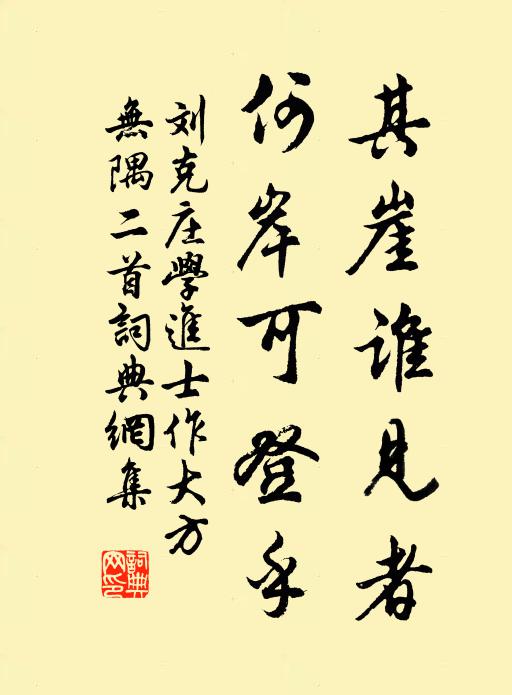 其崖谁見者
何岸可登乎
刘克庄學進士作大方
無隅二首詞典網集
詞典網印